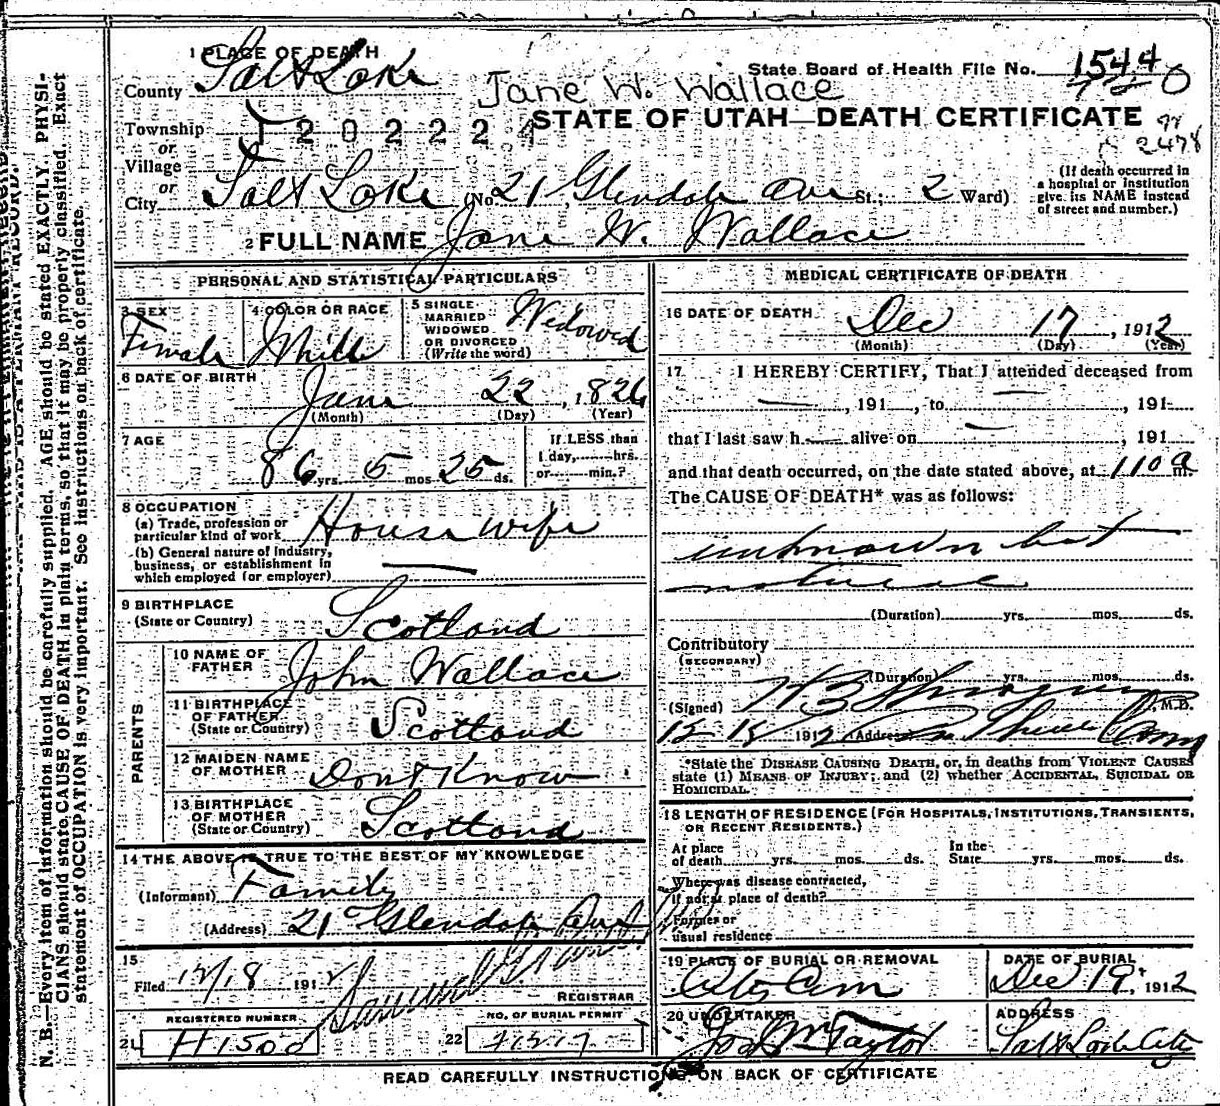 1 PLACE OF DEATH
County Salt Lake
Jane W. Wallace
State Board of Health File No. 1544
STATE OF UTAH—DEATH CERTIFICATE
2478
Township
or
Village
or
City Salt Lake (No. 21 Glendale Ave St.; 2 Ward)
(If death occurred in
a hospital or institution
give its NAME instead
of street and number.)
2 FULL NAME Jane W. Wallace
PERSONAL AND STATISTICAL PARTICULARS
3 SEX
Female
4 COLOR OR RACE
White
5 SINGLE
MARRIED
WIDOWED
OR DIVORCED
(Write the word)
Widowed
6 DATE OF BIRTH
Jan 22, 1826
(Month) (Day) (Year)
7 AGE
86 yrs. 5 mos 25 ds.
If LESS than
1 day, hrs.
or min.?
8 OCCUPATION
(a) Trade, profession or
particular kind of work House wife
(b) General nature of industry,
business, or establishment in
which employed (or employer)
9 BIRTHPLACE
(State or Country) Scotland
PARENTS
10 NAME OF
FATHER John Wallace
11 BIRTHPLACE
OF FATHER
(State or Country) Scotland
12 MAIDEN NAME
OF MOTHER Dont Know
13 BIRTHPLACE
OF MOTHER
(State or Country) Scotland
14 THE ABOVE IS TRUE TO THE BEST OF MY KNOWLEDGE
(Informant) Family
(Address) 21 Glendale Ave
15
Filed 12/18 1912
REGISTRAR
REGISTERED NUMBER
21
NO. OF BURIAL PERMIT
22
MEDICAL CERTIFICATE OF DEATH
16 DATE OF DEATH
Dec 17, 1912
(Month) (Day) (Year)
17 I HEREBY CERTIFY, That I attended deceased from
—, 191 , to —, 191
that I last saw h — alive on —, 191
and that death occurred, on the date stated above, at 110 a m.
The CAUSE OF DEATH* was as follows:
unknown but
natural
(Duration) yrs. mos. ds.
Contributory
(SECONDARY)
(Duration) yrs. mos. ds.
(Signed) M.D.
1912 (Address)
*State the DISEASE CAUSING DEATH, or, in deaths from VIOLENT CAUSES
state (1) MEANS OF INJURY; and (2) whether ACCIDENTAL, SUICIDAL OR
HOMICIDAL.
18 LENGTH OF RESIDENCE (FOR HOSPITALS, INSTITUTIONS, TRANSIENTS,
OR RECENT RESIDENTS.)
At place
of death yrs. mos. ds.
In the
State yrs. mos. ds.
Where was disease contracted,
if not at place of death?
Former or
usual residence
19 PLACE OF BURIAL OR REMOVAL
City Cem
DATE OF BURIAL
Dec 19, 1912
20 UNDERTAKER
Jos Wm Taylor
ADDRESS
Salt Lake City
READ CAREFULLY INSTRUCTIONS ON BACK OF CERTIFICATE
N. B.—Every item of information should be carefully supplied. AGE should be stated EXACTLY. PHYSI-
CIANS should state CAUSE OF DEATH in plain terms, so that it may be properly classified. Exact
statement of OCCUPATION is very important. See instructions on back of certificate.